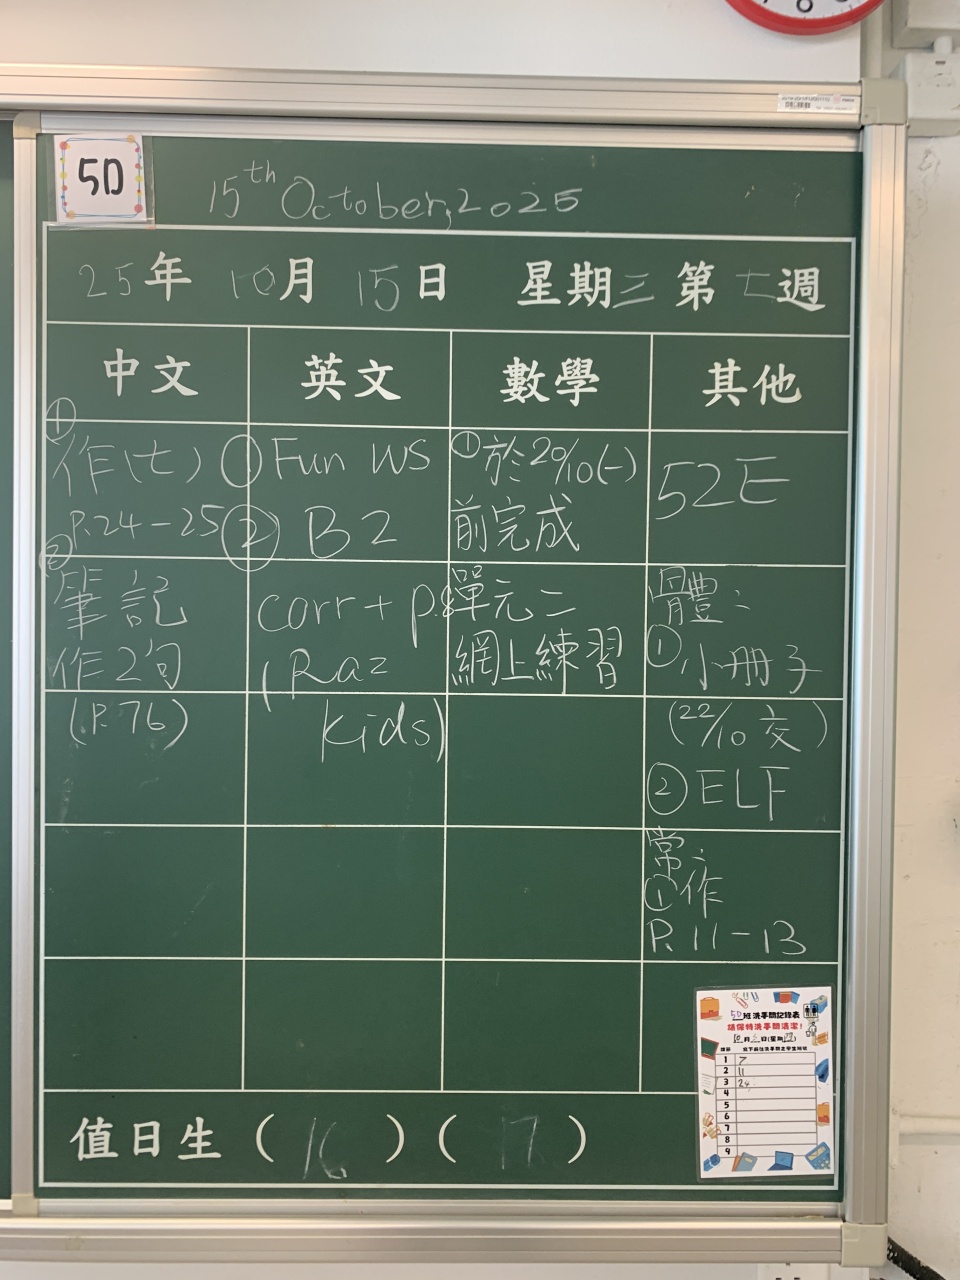 5D
15th October, 2025
25年 10月 15日 星期三 第七週
中文
① 作(七)
P.24-25
② 筆記
作2句
(P.76)
英文
① Fun WS
② B2
corr + p.8
(Raz
kids)
數學
① 於20/10(一)
前完成
單元二
網上練習
其他
52E
體:
① 小册子
(22/10 交)
② ELF
常:
① 作
P.11-13
值日生 (16) (17)
5D班洗手間記錄表
請保持洗手間清潔!
1 7
2 11
3 24
4
5
6
7
8
9